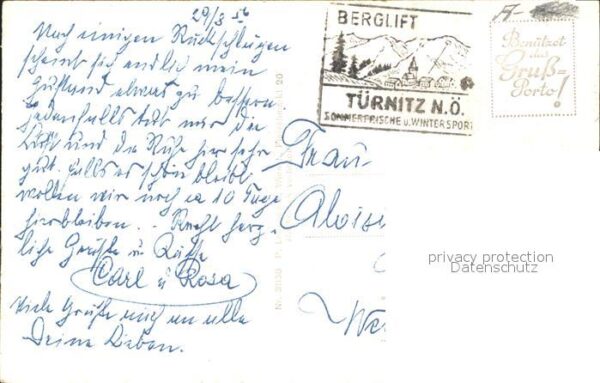 29/3 56
Nach einigen Rückschlägen
scheint sich endlich mein
Zustand etwas zu bessern
jedenfalls tut mir die
Luft und die Ruhe hier sehr
gut. Falls es schön bleibt
wollen wir noch ca 10 Tage
hierbleiben. Recht herz-
liche Grüße u
Carl u Rosa
Viele Grüße auch an alle
Deine Lieben.
BERGLIFT
TÜRNITZ N.Ö.
SOMMERFRISCHE u. WINTERSPORT
Benützet
das
Gruß-
Porto!
Frau
Aloisi
privacy protection
Datenschutz